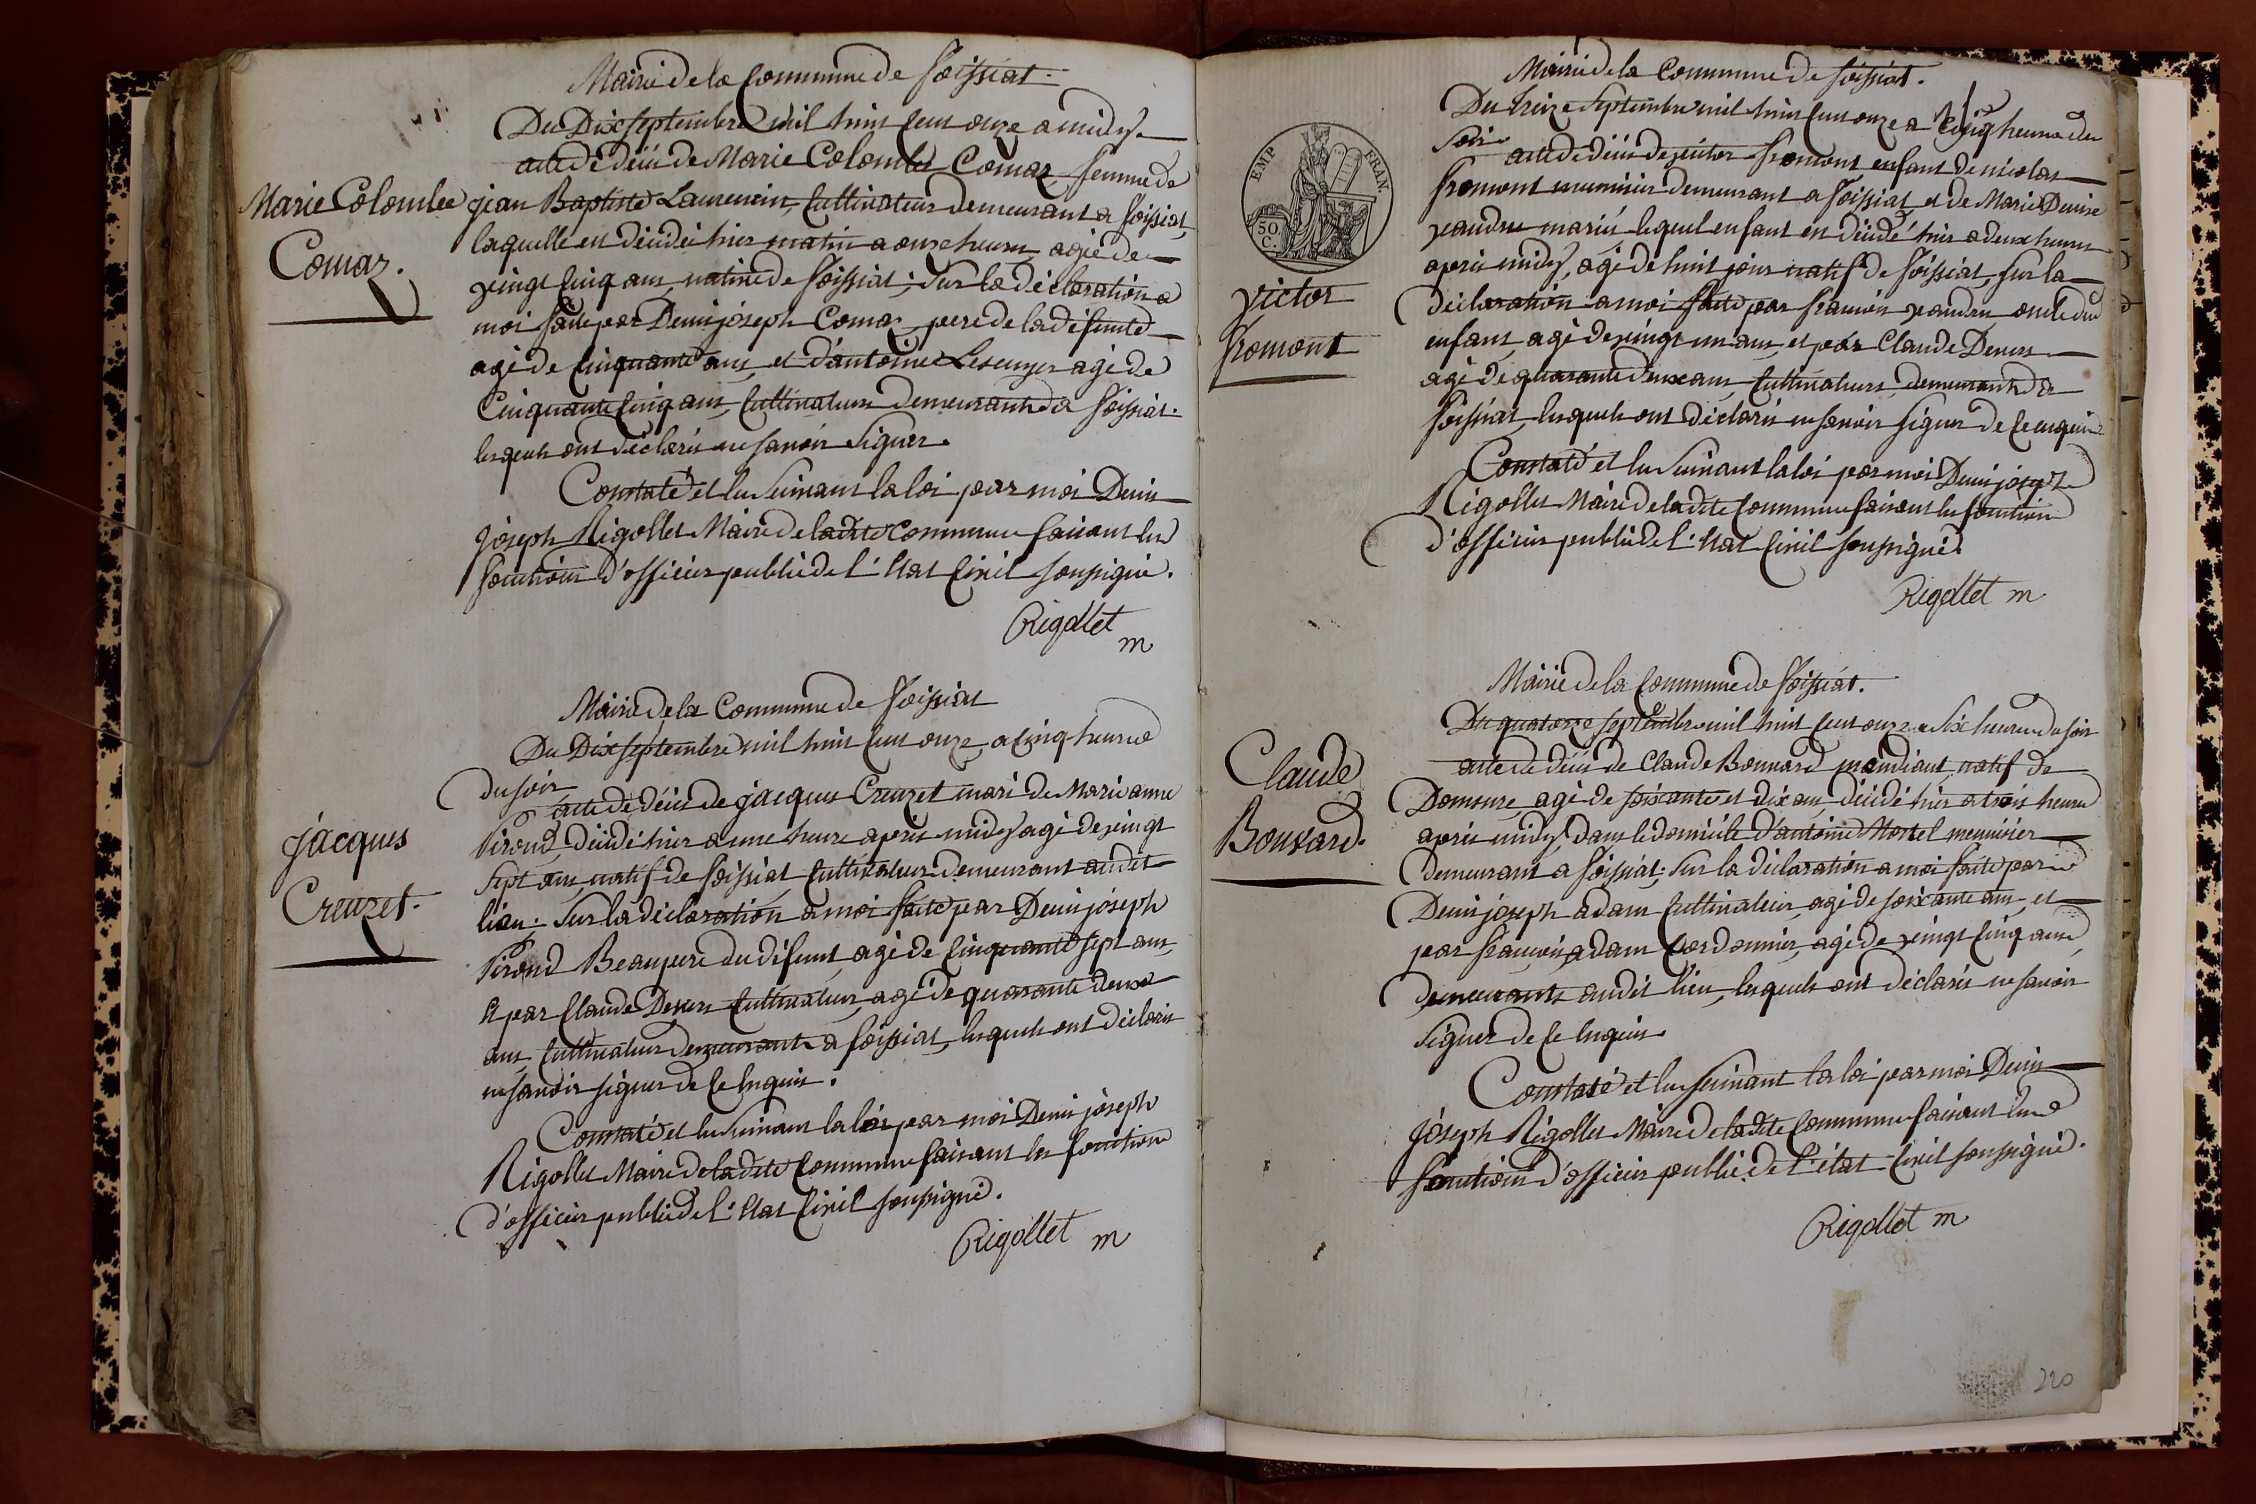 Mairie de la Commune de foissiat.
Du Dix septembre mil huit Cent onze a midy
acte de décès de Marie Colombe Comaz femme de
Marie Colombe
Comaz.
jean Baptiste Laurencin, Cultivateur demeurant a foissiat,
laquelle est décédée hier matin a onze heures, agée de
vingt Cinq ans, native de foissiat; Sur la déclaration a
moi faite par Denis joseph Comaz pere de la défunte
agé de Cinquante ans, et d'antoine agé de
Cinquante Cinq ans, Cultivateurs demeurants a foissiat.
lesquels ont déclarés ne savoir signer.
Constaté et lu Suivant la loi par moi Denis
joseph Rigollet Maire de ladite Commune faisant les
fonctions d'officier public de l'Etat Civil soussigné.
Rigollet
m
Mairie de la Commune de foissiat
Du Dix septembre mil huit Cent onze a Cinq heures
du soir
acte de décès de jacques Creuzet mari de Marie anne
jacques
Creuzet.
Pirond, décédé hier a une heure après midy agé de vingt
sept ans, natif de foissiat Cultivateur demeurant audit
lieu; Sur la déclaration a moi faite par Denis joseph
Pirond Beaupere du défunt, agé de Cinquante sept ans,
et par Claude Cultivateur, agé de quarante deux
ans, Cultivateurs demeurants a foissiat, lesquels ont déclarés
ne savoir signer de Ce Enquis.
Constaté et lu Suivant la loi par moi Denis joseph
Rigollet Maire de ladite Commune faisant les fonctions
d'officier public de l'Etat Civil soussigné.
Rigollet m
Mairie de la Commune de foissiat.
Du treize septembre mil huit Cent onze a Cinq heures du
soir
acte de décès de victor fromont enfant de nicolas
EMP FRAN.
50 C.
victor
fromont
fromont meunier demeurant a foissiat et de Marie Denise
vaudru mariés lequel enfant est décédé hier a deux heures
après midy, agé de huit jours natif de foissiat, sur la
déclaration a moi faite par françois vaudru oncle du
enfant, agé de vingt un ans, et par Claude
agé de quarante deux ans Cultivateurs demeurants a
foissiat, lesquels ont déclarés ne savoir signer de Ce enquis
Constaté et lu Suivant la loi par moi Denis joseph
Rigollet Maire de ladite Commune faisant les fonctions
d'officier public de l'Etat Civil soussigné.
Rigollet m
Mairie de la Commune de foissiat.
Du quatorze septembre mil huit Cent onze a Six heures du soir
acte de décès de Claude Bonnard mandiant, natif de
Claude
Bonnard.
Domsure, agé de soixante et dix ans, décédé hier a trois heures
après midy, dans le domicile d'antoine Mortel meunier
demeurant a foissiat; sur la déclaration a moi faite par
Denis joseph adam Cultivateur, agé de soixante ans, et
par françois adam Cordonnier, agé de vingt Cinq ans,
demeurants audit lieu, lesquels ont déclarés ne savoir
signer de Ce Enquis.
Constaté et lu suivant la loi par moi Denis
joseph Rigollet Maire de ladite Commune faisant les
fonctions d'officier public de l'état Civil soussigné.
Rigollet m
220